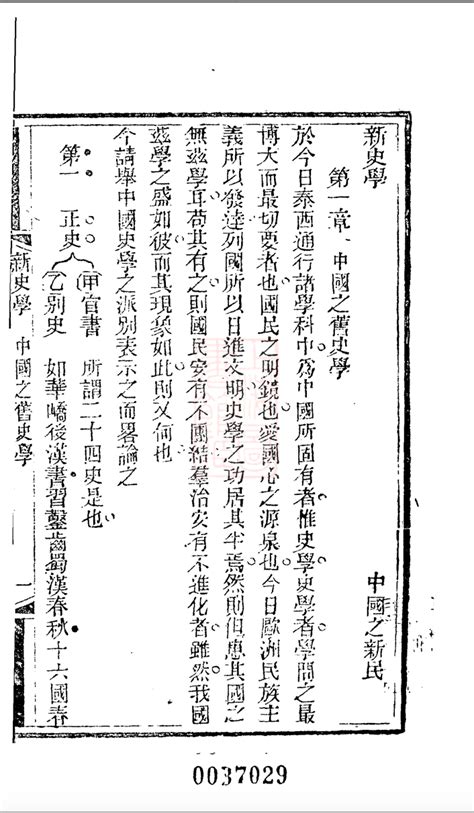 新史學
中國之新民
第一章、中國之舊史學
於今日泰西通行諸學科中爲中國所固有者惟史學史學者學問之最
博大而最切要者也國民之明鏡也愛國心之源泉也今日歐洲民族主
義所以發達列國所以日進文明史學之功居其半焉然則但患其國之
無茲學耳苟其有之則國民安有不團結羣治安有不進化者雖然我國
茲學之盛如彼而其現象如此則又何也
今請舉中國史學之派別表示之而畧論之
第一 正史
甲官書 所謂二十四史是也
乙別史 如華嶠後漢書習鑿齒蜀漢春秋十六國春
新史學 中國之舊史學
一
0037029